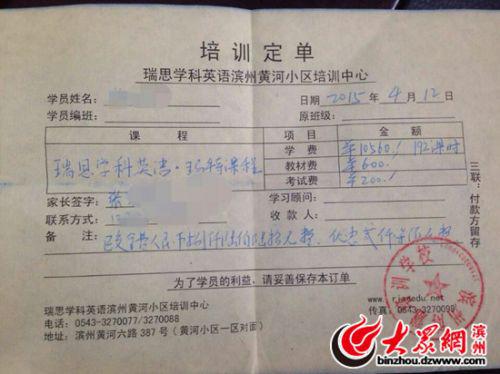 培训定单
瑞思学科英语滨州黄河小区培训中心
学员姓名: 日期 2015 年 4 月 12 日
学员编班: 原班级:
课 程 项 目 金 额
瑞思学科英语· 课程 学 费 ¥10560! 192课时
教材费 ¥600!
考试费 ¥200!
家长签字: 学习顾问:
联系方式: 收 款 人:
备 注:
三联:付款方留存
为了学员的利益,请妥善保存本订单
瑞思学科英语滨州黄河小区培训中心
电话:0543-3270077/3270088 传真:0543-3270099
地址:滨州黄河六路 387 号(黄河小区一区对面)
培训学校
大众网 滨州
binzhou.dzwww.com